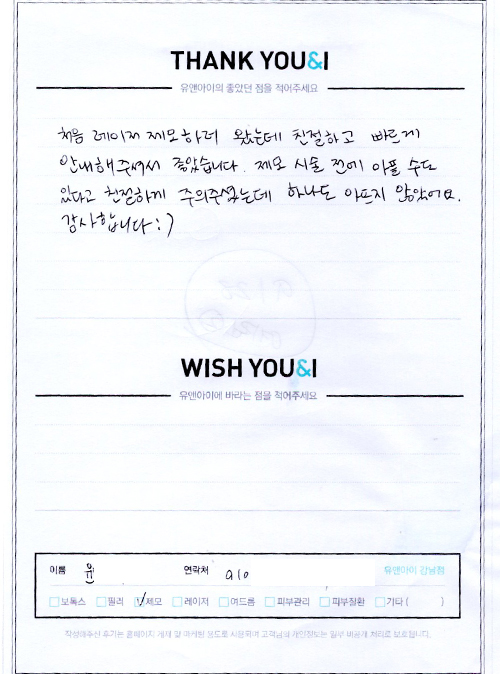 THANK YOU&I
유앤아이의 좋았던 점을 적어주세요
처음 레이저 제모하러 왔는데 친절하고 빠르게
안내해주셔서 좋았습니다. 제모 시술 전에 아플 수도
있다고 친절하게 주의주셨는데 하나도 아프지 않았어요.
감사합니다 :)
WISH YOU&I
유앤아이에 바라는 점을 적어주세요
이름 유 연락처 010 유앤아이 강남점
보톡스 필러 제모 레이저 여드름 피부관리 피부질환 기타 ( )
작성해주신 후기는 홈페이지 게재 및 마케팅 용도로 사용되며 고객님의 개인정보는 일부 비공개 처리로 보호됩니다.